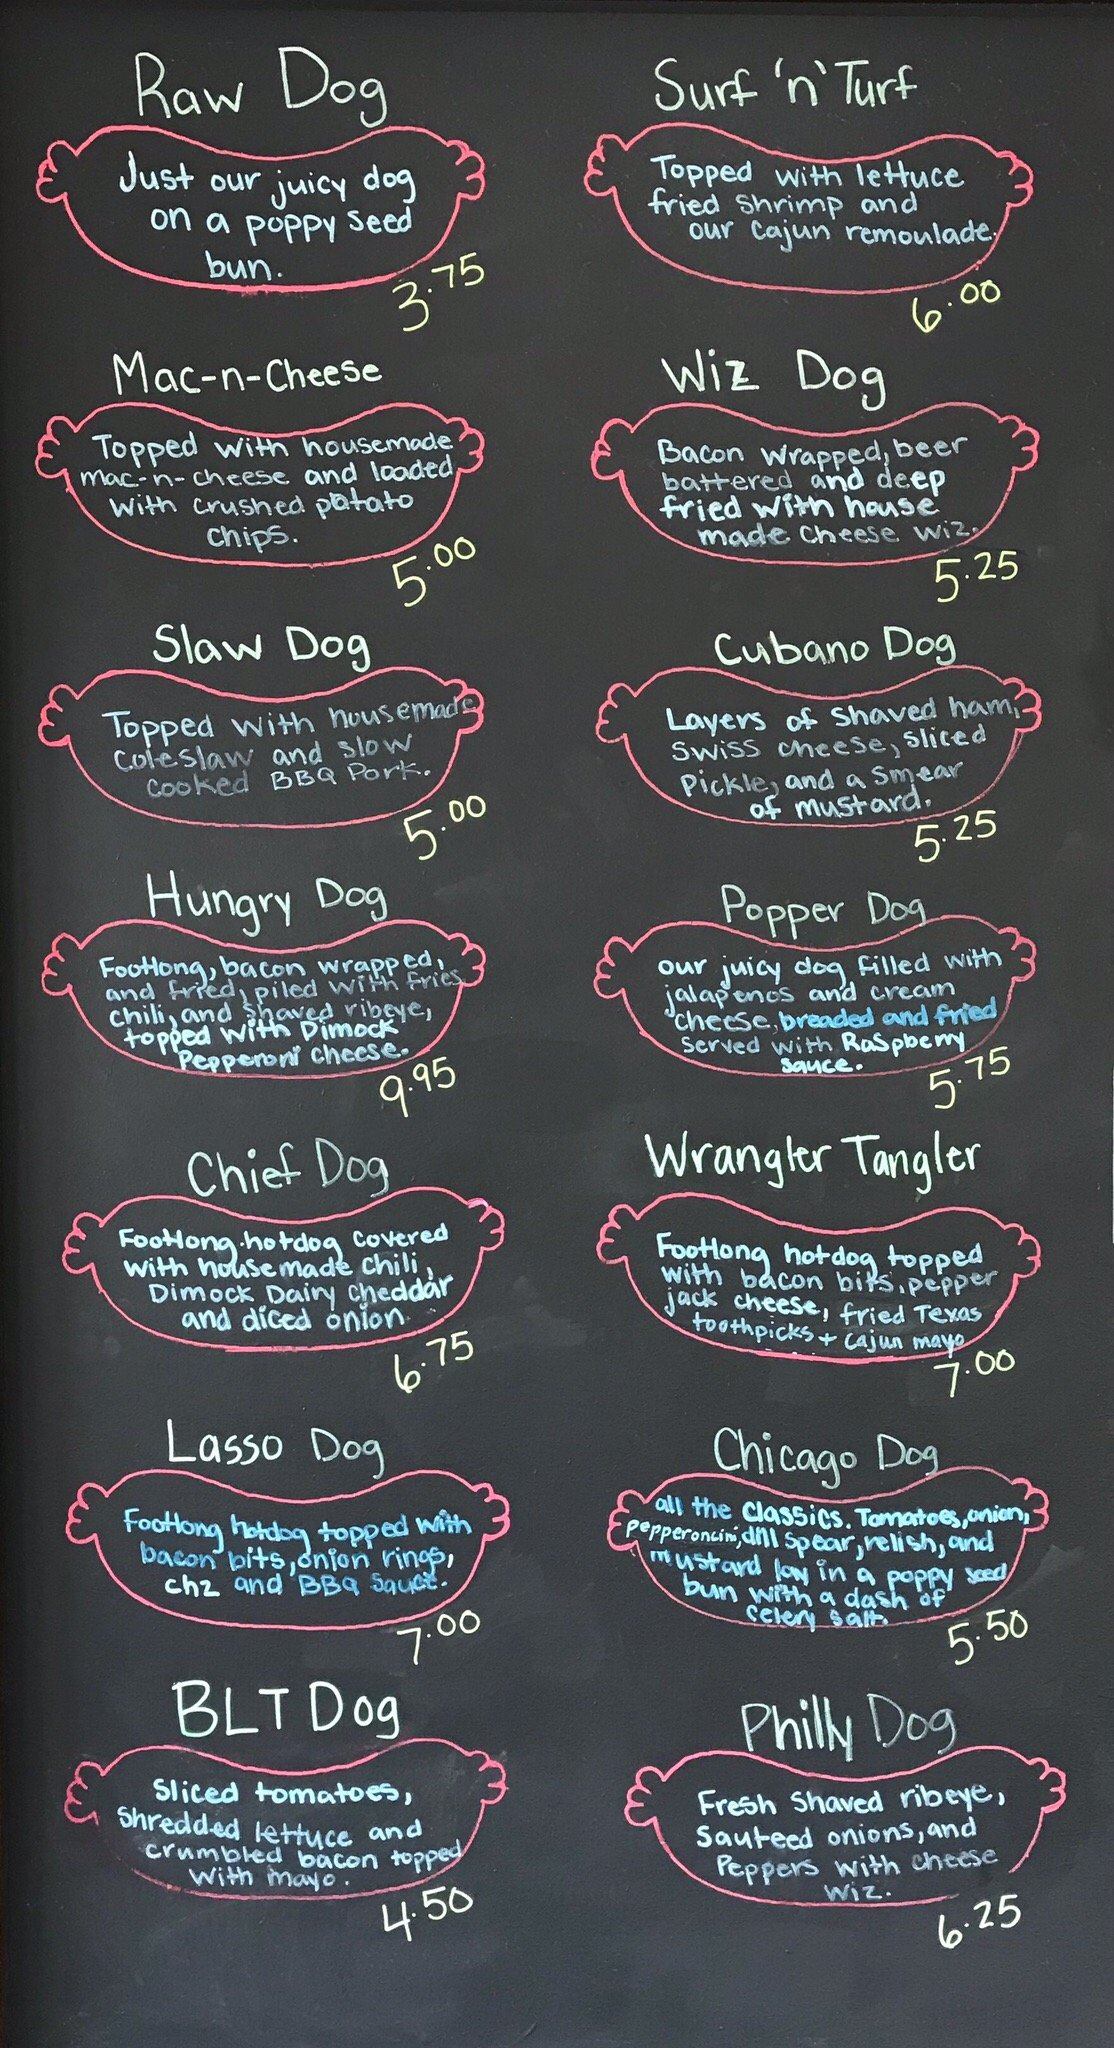 Raw Dog
Just our juicy dog
on a poppy seed
bun.
3.75
Mac-n-Cheese
Topped with housemade
mac-n-cheese and loaded
with crushed potato
chips.
5.00
Slaw Dog
Topped with housemade
coleslaw and slow
cooked BBQ Pork.
5.00
Hungry Dog
Footlong, bacon wrapped,
and fried, piled with fries
chili, and shaved ribeye,
topped with Dimock
Pepperoni cheese.
9.95
Chief Dog
Footlong hotdog covered
with housemade chili,
Dimock Dairy cheddar
and diced onion.
6.75
Lasso Dog
Footlong hotdog topped with
bacon bits, onion rings,
chz and BBQ sauce.
7.00
BLT Dog
Sliced tomatoes,
shredded lettuce and
crumbled bacon topped
with mayo.
4.50
Surf 'n' Turf
Topped with lettuce
fried shrimp and
our cajun remoulade.
6.00
Wiz Dog
Bacon wrapped, beer
battered and deep
fried with house
made cheese wiz.
5.25
Cubano Dog
Layers of shaved ham,
swiss cheese, sliced
pickle, and a smear
of mustard.
5.25
Popper Dog
our juicy dog filled with
jalapenos and cream
cheese, breaded and fried
served with Raspberry
sauce.
5.75
Wrangler Tangler
Footlong hotdog topped
with bacon bits, pepper
jack cheese, fried Texas
toothpicks + cajun mayo
7.00
Chicago Dog
all the classics. Tomatoes, onion,
pepperoncini, dill spear, relish, and
mustard lay in a poppy seed
bun with a dash of
celery salt.
5.50
Philly Dog
Fresh shaved ribeye,
sauteed onions, and
Peppers with cheese
wiz.
6.25